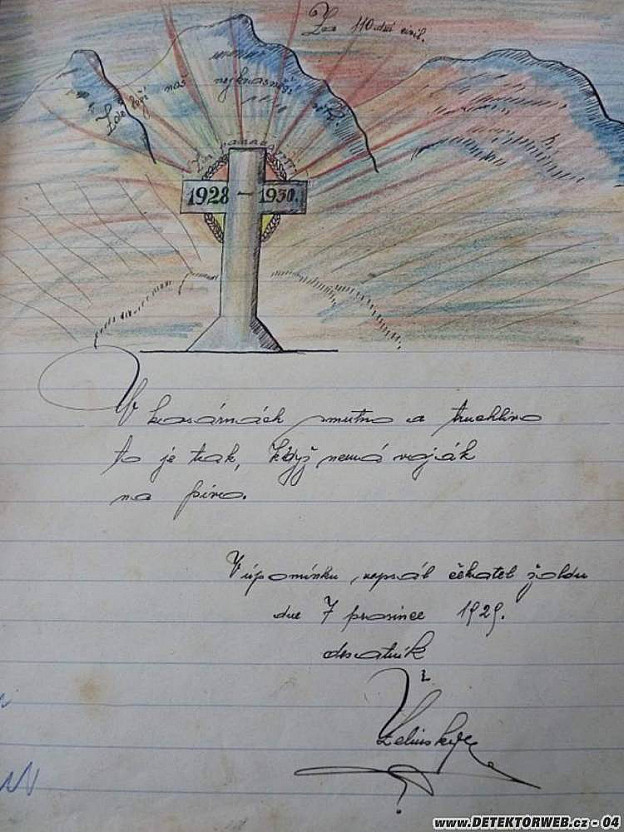 Za 110 dní civil.
Zde leží náš nejkrásnější
1928 – 1930.
V kasárnách smutno a truchlivo
to je tak, když nemá voják
na pivo.
V úpomínku, napsal čekatel žoldu
dne 7 prosince 1929.
desátník
www.DETEKTORWEB.cz - 04